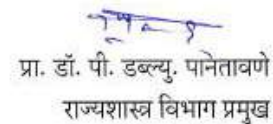 प्रा. डॉ. पी. डब्ल्यु. पानतावणे
राज्यशास्त्र विभाग प्रमुख